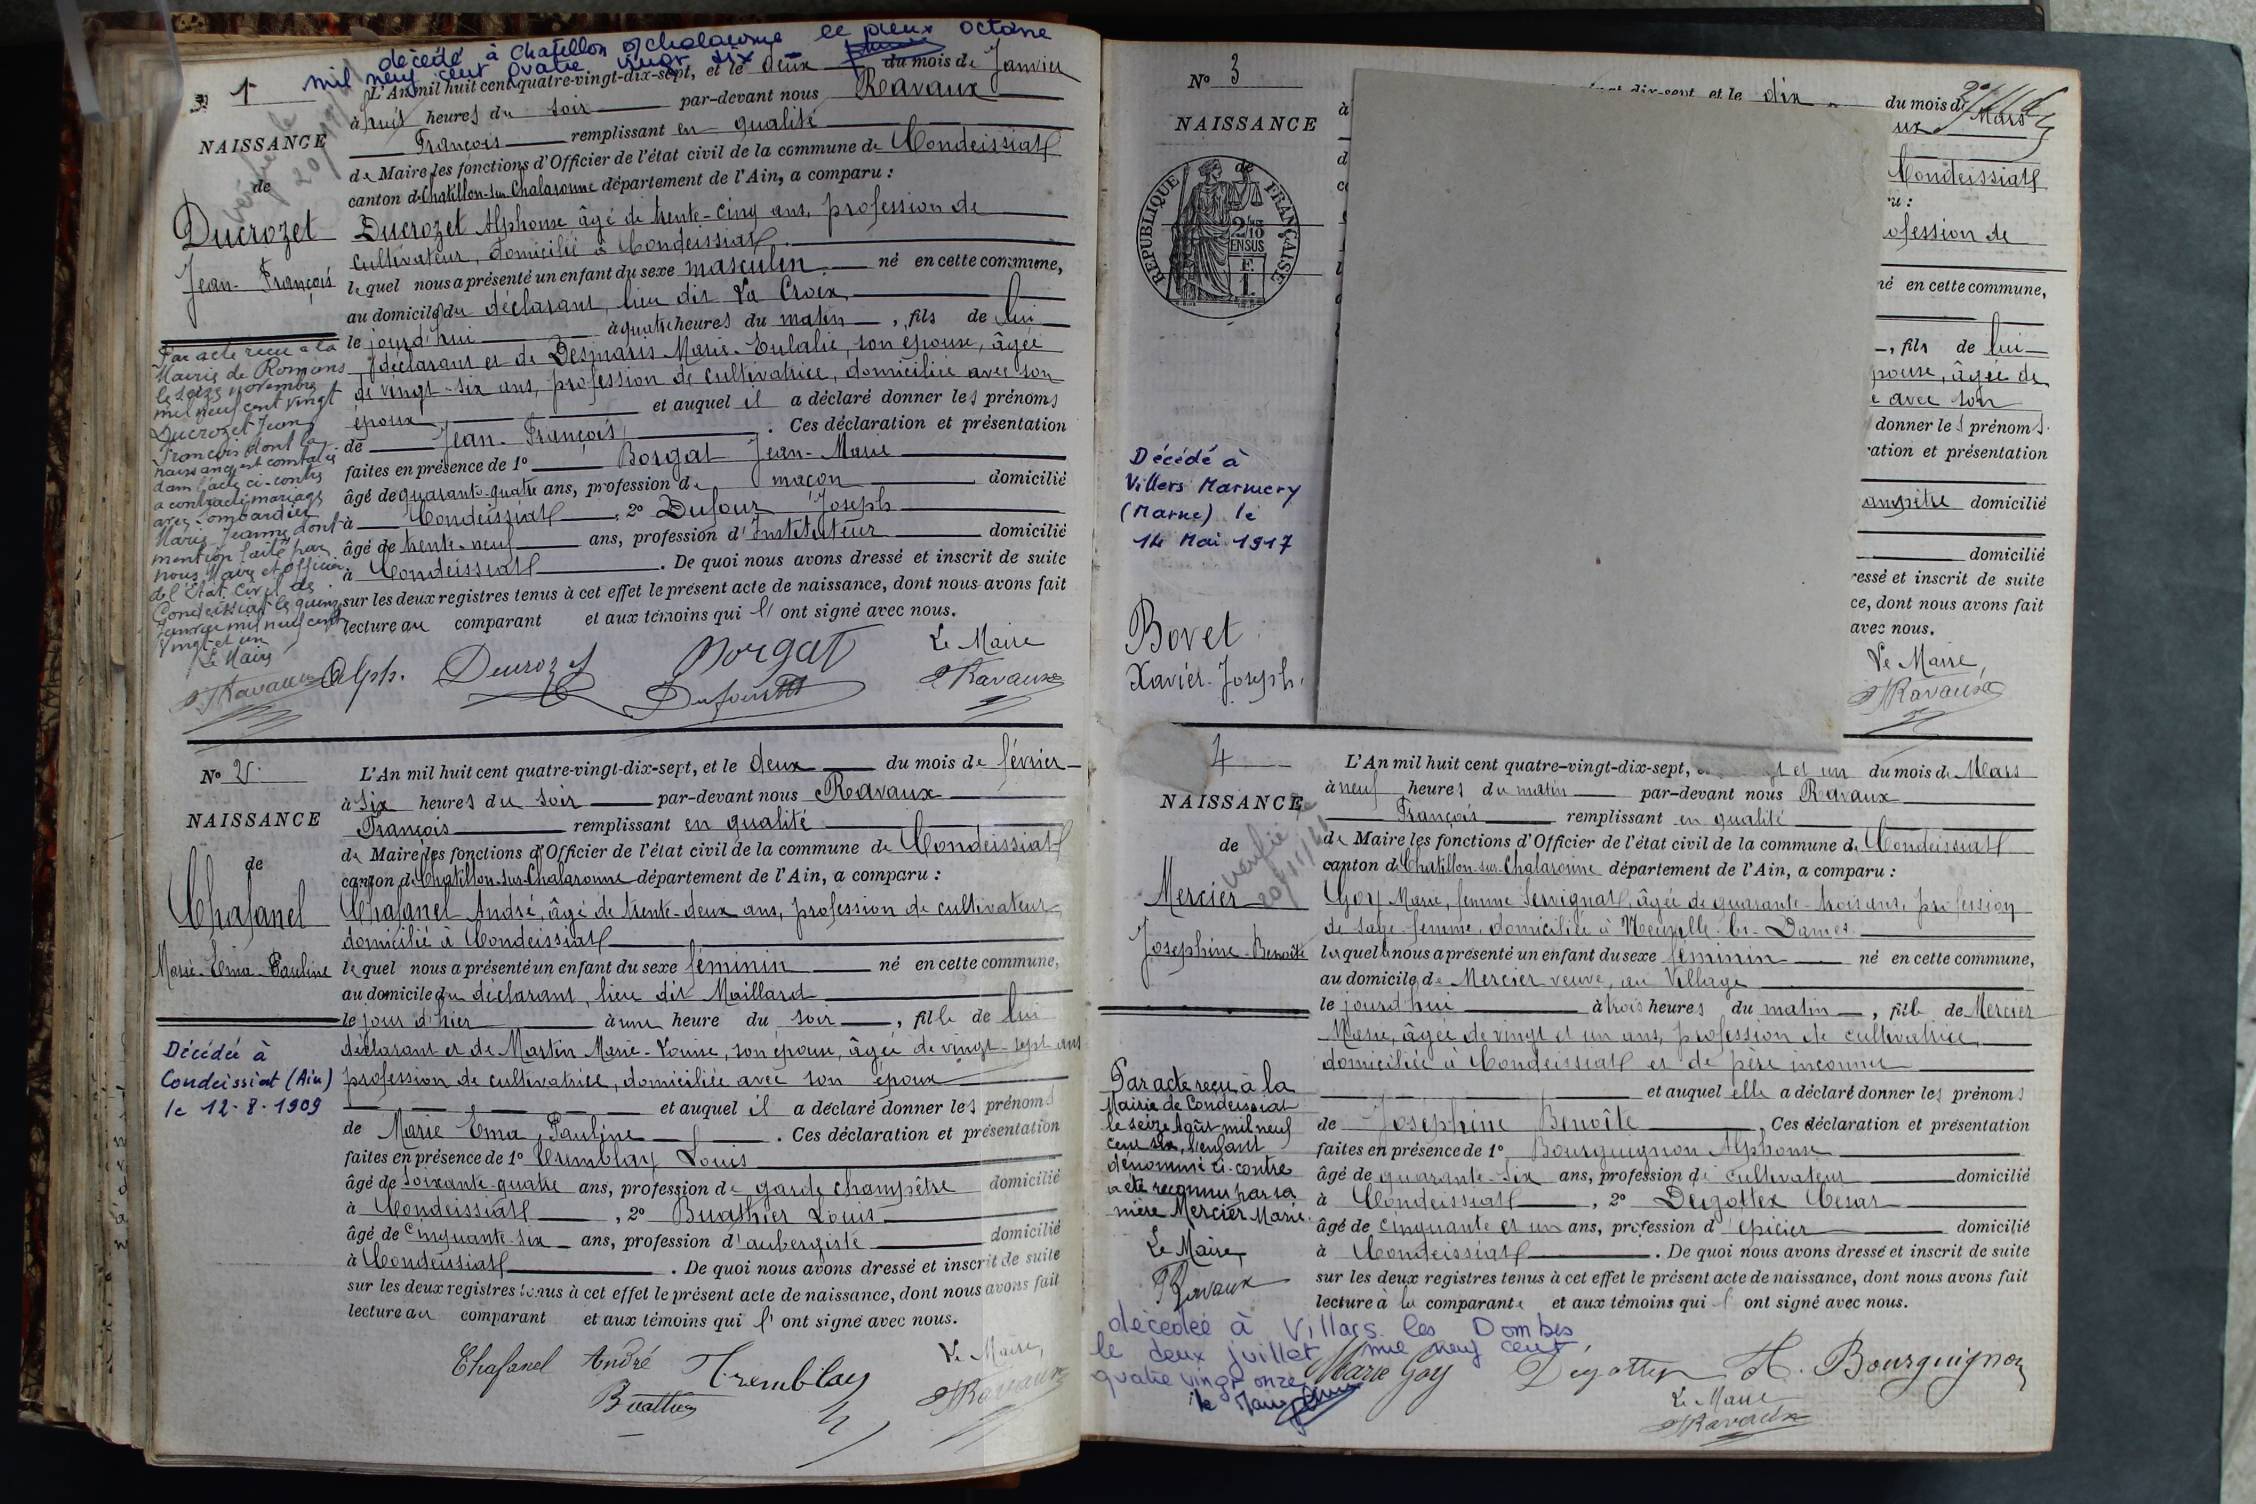 décédé à Chatillon s/ chalaronne le deux octobre
mil neuf cent quatre vingt six
1
L'An mil huit cent quatre-vingt-dix-sept, et le deux du mois de Janvier
à huit heures du soir par-devant nous Ravaux
NAISSANCE
François remplissant en qualité
de Maire les fonctions d'Officier de l'état civil de la commune de Condeissiat
de
canton de Chatillon-sur-Chalaronne département de l'Ain, a comparu :
vérifié le
Ducrozet
Jean-François
Ducrozet Alphonse âgé de trente-cinq ans, profession de
cultivateur, domicilié à Condeissiat
lequel nous a présenté un enfant du sexe masculin né en cette commune,
au domicile du déclarant, lieu dit La Croix,
le jourd'hui à quatre heures du matin, fils de lui
déclarant et de Desmaris Marie-Eulalie, son épouse, âgée
de vingt-six ans, profession de cultivatrice, domiciliée avec son
époux et auquel il a déclaré donner les prénoms
de Jean-François. Ces déclaration et présentation
faites en présence de 1º Borgat Jean-Marie
âgé de quarante-quatre ans, profession de maçon domicilié
à Condeissiat, 2º Dufour Joseph
âgé de trente-neuf ans, profession d'Instituteur domicilié
à Condeissiat. De quoi nous avons dressé et inscrit de suite
sur les deux registres tenus à cet effet le présent acte de naissance, dont nous avons fait
lecture au comparant et aux témoins qui l'ont signé avec nous.
Par acte reçu à la
Mairie de Romans
le seize novembre
mil neuf cent vingt
Ducrozet Jean
François dont la
naissance est constatée
dans l'acte ci-contre
a contracté mariage
avec Lombardier
Marie Jeanne dont
mention faite par
nous Maire et officier
de l'Etat Civil de
Condeissiat le quinze
janvier mil neuf cent
vingt et un
Le Maire
Ravaux
Alph. Ducrozet Borgat Le Maire
Dufour Ravaux
Nº 2
L'An mil huit cent quatre-vingt-dix-sept, et le deux du mois de février
à six heures du soir par-devant nous Ravaux
NAISSANCE
François remplissant en qualité
de Maire les fonctions d'Officier de l'état civil de la commune de Condeissiat
de
canton de Chatillon-sur-Chalaronne département de l'Ain, a comparu :
Chafanel
Marie-Ema-Pauline
Chafanel André, âgé de trente-deux ans, profession de cultivateur
domicilié à Condeissiat
lequel nous a présenté un enfant du sexe féminin né en cette commune,
au domicile du déclarant, lieu dit Maillard
le jour d'hier à une heure du soir, fille de lui
déclarant et de Martin Marie-Louise, son épouse, âgée de vingt-sept ans
profession de cultivatrice, domiciliée avec son époux
et auquel il a déclaré donner les prénoms
de Marie Ema Pauline. Ces déclaration et présentation
faites en présence de 1º Tremblay Louis
âgé de soixante-quatre ans, profession de garde champêtre domicilié
à Condeissiat, 2º Buathier Louis
âgé de cinquante-six ans, profession d'aubergiste domicilié
à Condeissiat. De quoi nous avons dressé et inscrit de suite
sur les deux registres tenus à cet effet le présent acte de naissance, dont nous avons fait
lecture au comparant et aux témoins qui l'ont signé avec nous.
Décédée à
Condeissiat (Ain)
le 12-8-1909
Chafanel André Tremblay Le Maire,
Ravaux
Nº 3
dix-sept, et le dix du mois de Mars
NAISSANCE
à
ux
de
Condeissiat
RÉPUBLIQUE FRANÇAISE
2/10
EN SUS
ofession de
né en cette commune,
, fils de lui
pouse, âgée de
avec son
donner les prénoms
ration et présentation
ampêtre domicilié
domicilié
ressé et inscrit de suite
ce, dont nous avons fait
avec nous.
Le Maire,
Ravaux
Décédé à
Villers Marmery
(Marne) le
14 Mai 1917
Bovet
Xavier-Joseph
4
L'An mil huit cent quatre-vingt-dix-sept, et un du mois de Mars
à neuf heures du matin par-devant nous Ravaux
NAISSANCE
François remplissant en qualité
de Maire les fonctions d'Officier de l'état civil de la commune de Condeissiat
de
canton de Chatillon-sur-Chalaronne département de l'Ain, a comparu :
vérifié le
Mercier
Josephine-Benoîte
Goy Marie, femme Servignat, âgée de quarante-trois ans, profession
de sage-femme, domiciliée à Neuville-les-Dames
laquelle nous a présenté un enfant du sexe féminin né en cette commune,
au domicile de Mercier veuve, au Village
le jourd'hui à trois heures du matin, fille de Mercier
Marie, âgée de vingt et un ans, profession de cultivatrice,
domiciliée à Condeissiat et de père inconnu
et auquel elle a déclaré donner les prénoms
de Joséphine Benoîte. Ces déclaration et présentation
faites en présence de 1º Bourguignon Alphonse
âgé de quarante-six ans, profession de cultivateur domicilié
à Condeissiat, 2º Degottex Cesar
âgé de cinquante et un ans, profession d'épicier domicilié
à Condeissiat. De quoi nous avons dressé et inscrit de suite
sur les deux registres tenus à cet effet le présent acte de naissance, dont nous avons fait
lecture à la comparante et aux témoins qui l'ont signé avec nous.
Par acte reçu à la
Mairie de Condeissiat
le seize Août mil neuf
cent six, l'enfant
dénommé ci-contre
a été reconnu par sa
mère Mercier Marie.
Le Maire,
Ravaux
décédée à Villars les Dombes
le deux juillet mil neuf cent
quatre vingt onze
le Maire
Marie Goy Dégottex A. Bourguignon
Le Maire
Ravaux